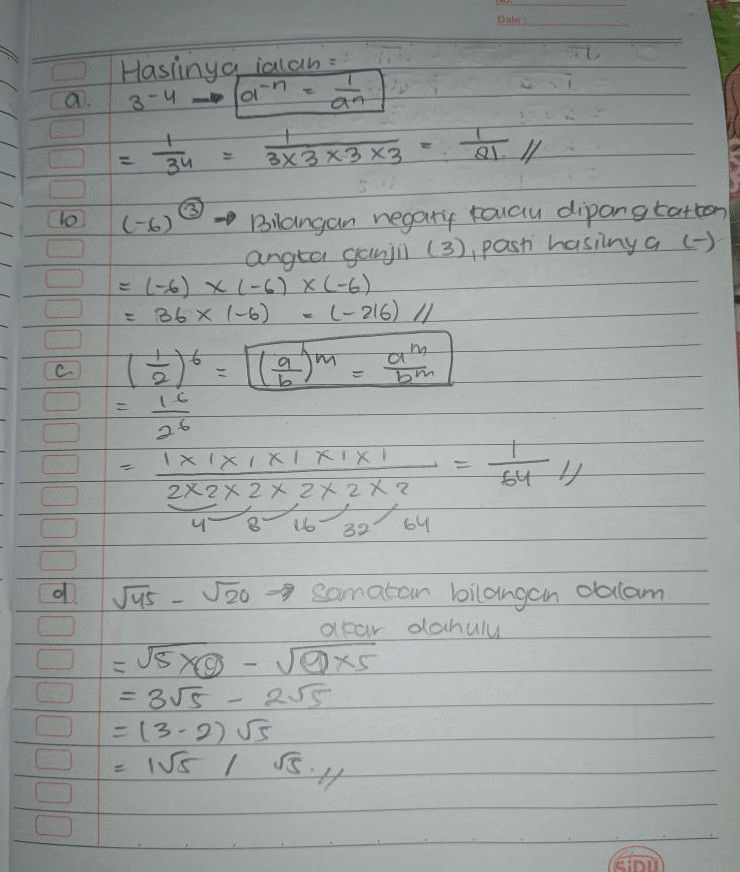 No.
Date :
Hasilnya ialah =
a. 3⁻⁴ → a⁻ⁿ = 1/aⁿ
= 1/3⁴ = 1/(3×3×3×3) = 1/81 //
b (-6)³ → Bilangan negatif kalau dipangkatkan
angka ganjil (3), pasti hasilnya (-)
= (-6) × (-6) × (-6)
= 36 × (-6) = (-216) //
c. (1/2)⁶ = (a/b)ᵐ = aᵐ/bᵐ
= 1⁶/2⁶
= (1×1×1×1×1×1)/(2×2×2×2×2×2) = 1/64 //
4 8 16 32 64
d. √45 - √20 → samakan bilangan dalam
akar dahulu
= √5×9 - √4×5
= 3√5 - 2√5
= (3-2) √5
= 1√5 / √5. //
SiDU